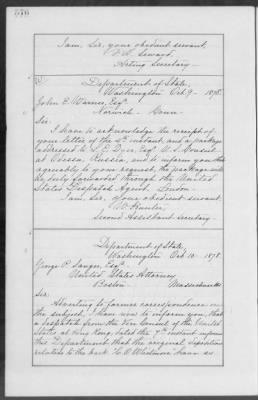 I am, Sir, your obedient servant,
F. W. Seward,
Acting Secretary.
Department of State,
Washington Oct. 9 - 1878.
John E. Warner, Esq.
Norwich - Conn -
Sir:
I have to acknowledge the receipt of
your letter of the 5th instant, and a package
addressed to L. E. Dyer, Esq. U. S. Consul
at Odessa, Russia, and to inform you that
agreeably to your request, the package will
be duly forwarded through the United
States Despatch Agent, London.
I am, Sir, your obedient servant,
W. Hunter,
Second Assistant Secretary.
Department of State,
Washington Oct. 10 - 1878.
George P. Sanger, Esq.
United States Attorney
Boston - Massachusetts
Sir:
Adverting to former correspondence on
the subject, I have now to inform you, that
a despatch from the Vice Consul of the United
States at Hong Kong, dated the 7th instant informs
this Department that the original deposition
relative to the bark "H. O. Wickmore" have as